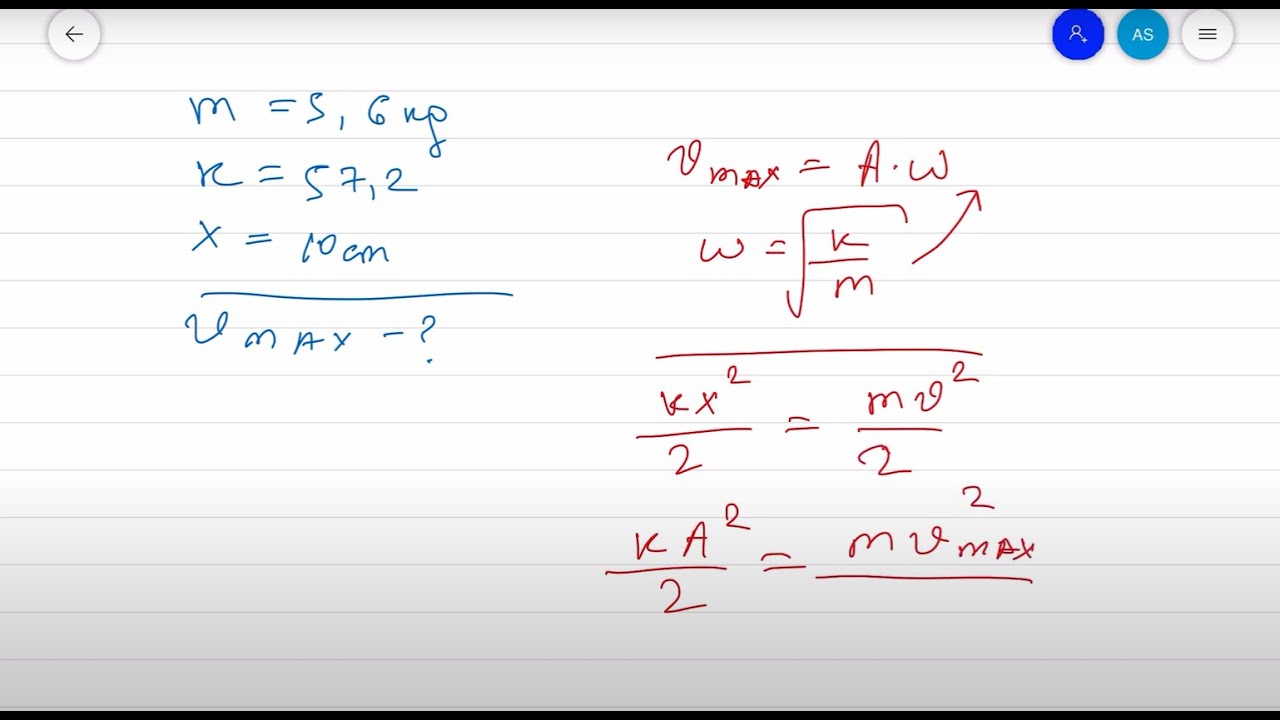 AS
m = 5,6 кг
k = 57,2
x = 10 cm
υ max - ?
υ max = A · ω
ω = √(k/m)
kx²/2 = mυ²/2
kA²/2 = mυ²max